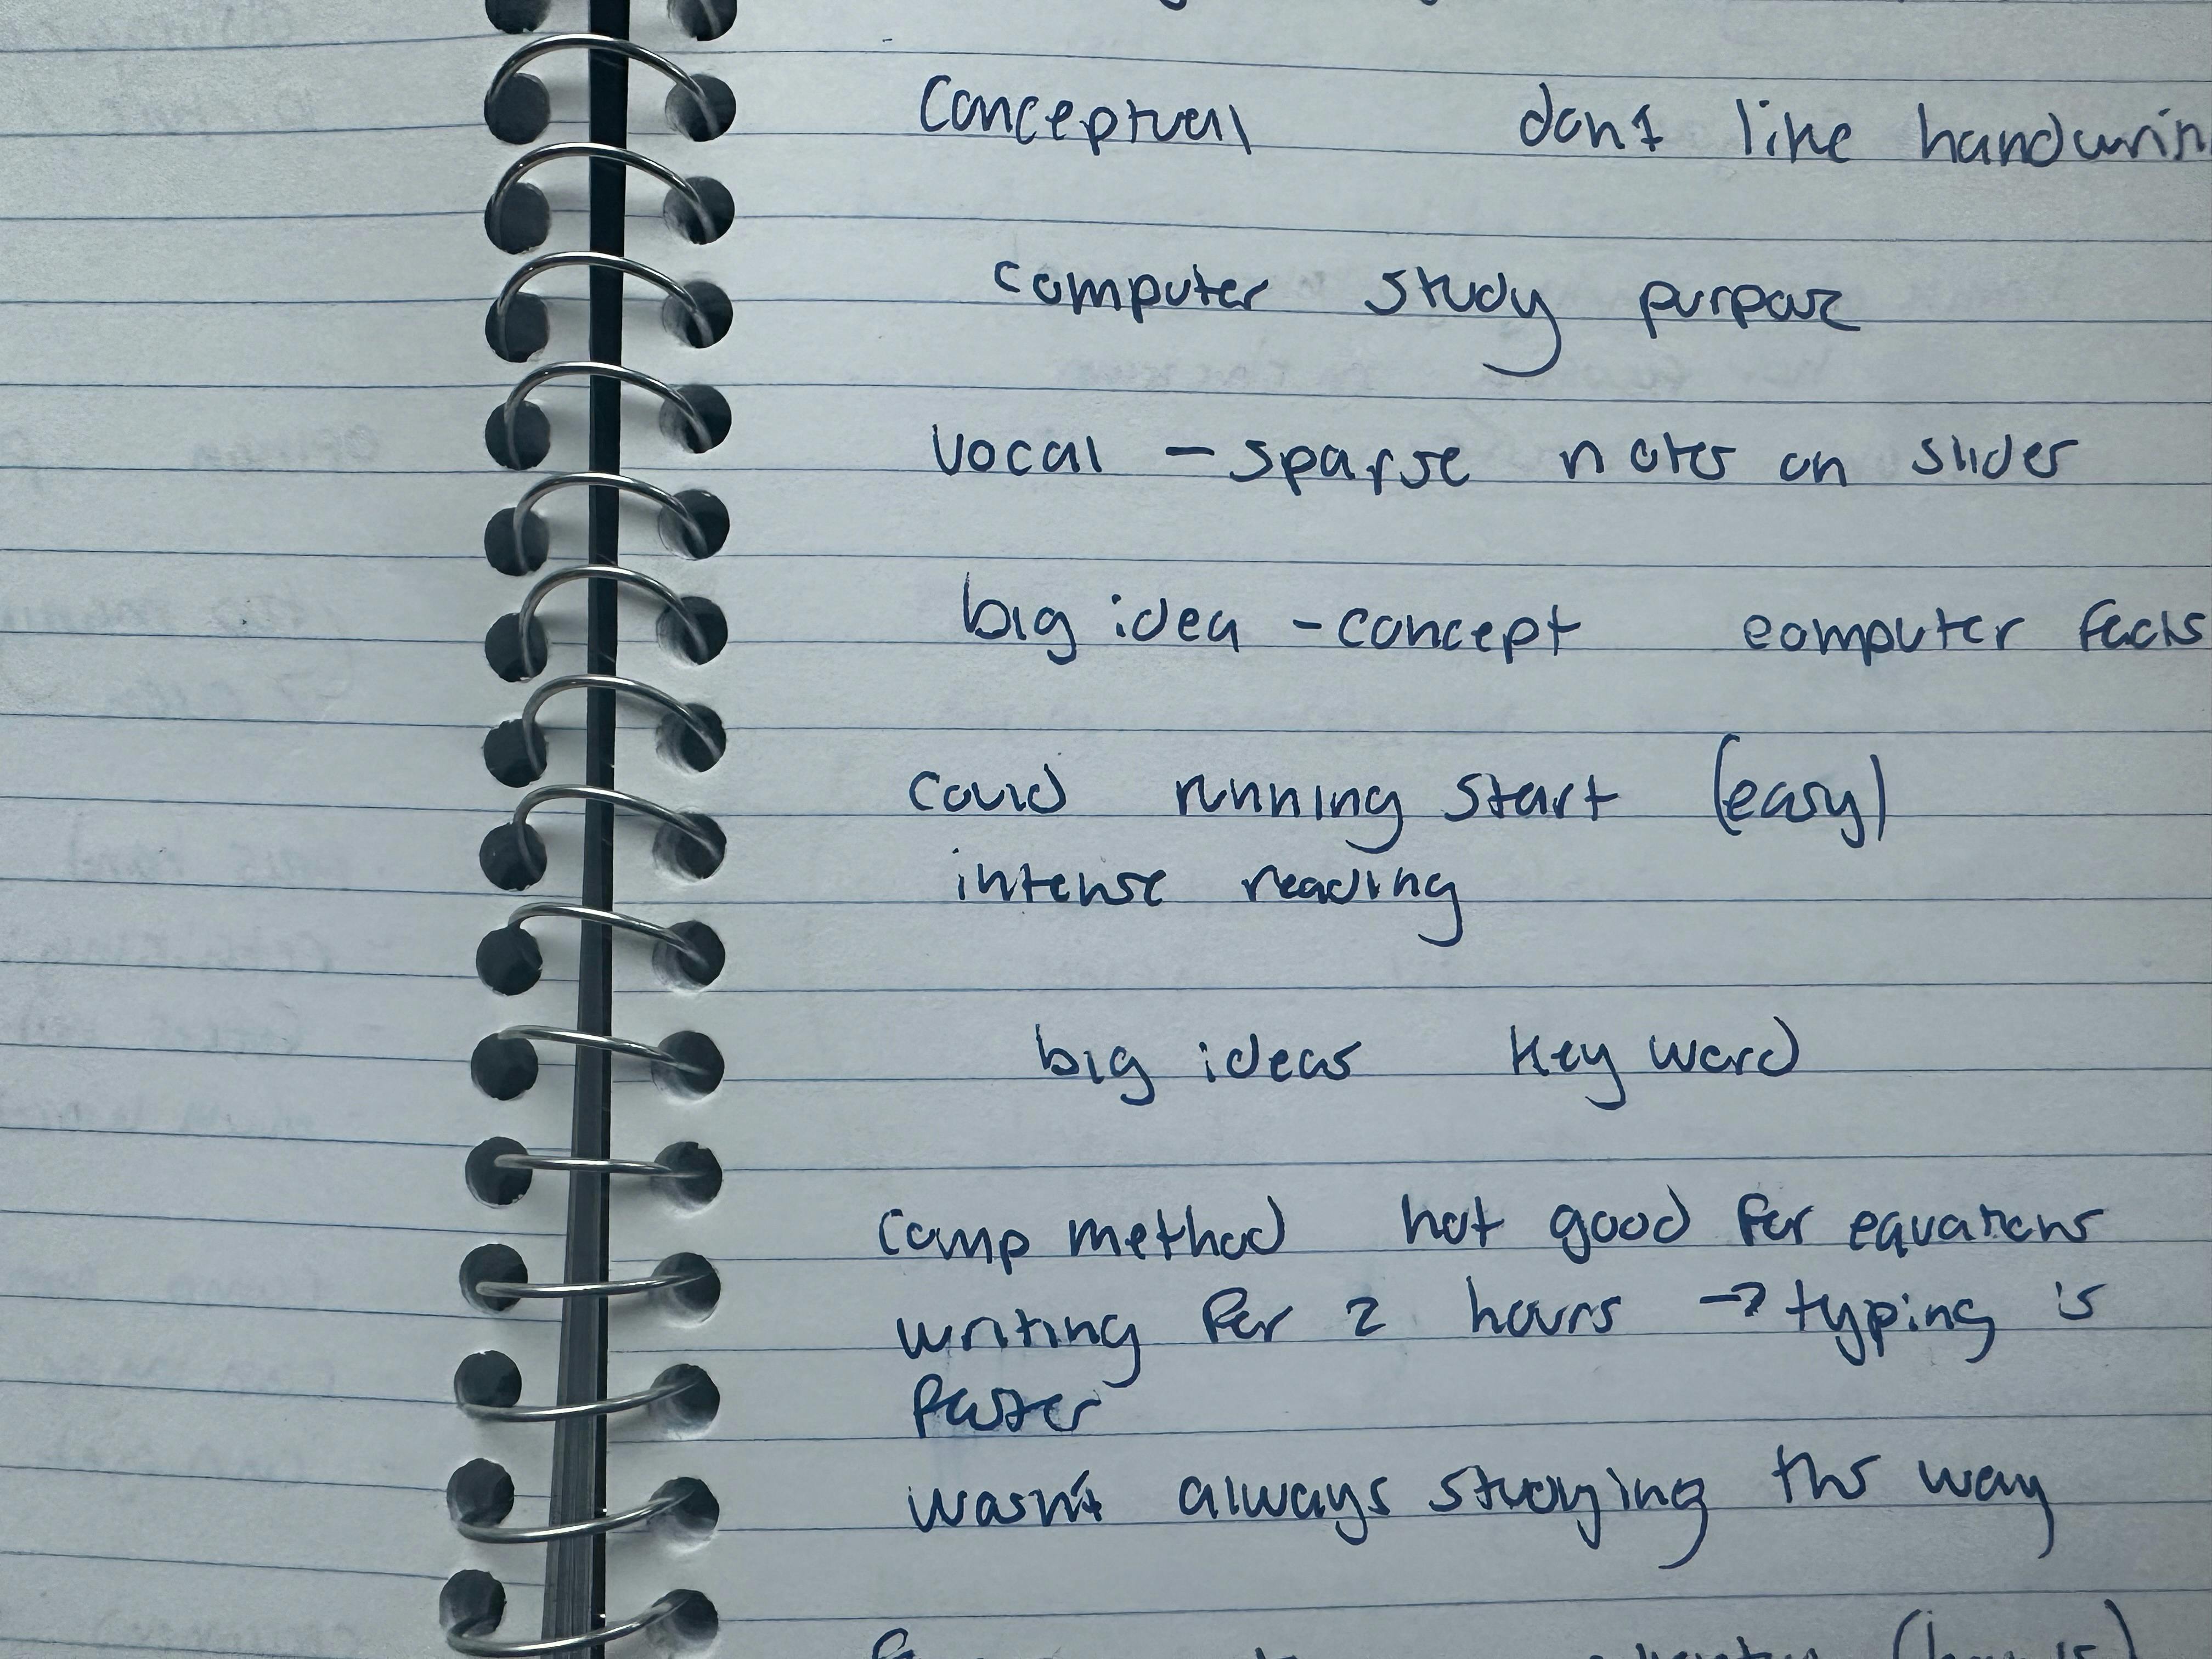 Conceptual don't like
computer study purpose
vocal - sparse notes on slides
big idea - concept computer facts
covid running start (easy)
intense reading
big ideas key word
comp method not good for equations
writing for 2 hours → typing is
faster
wasn't always studying this way